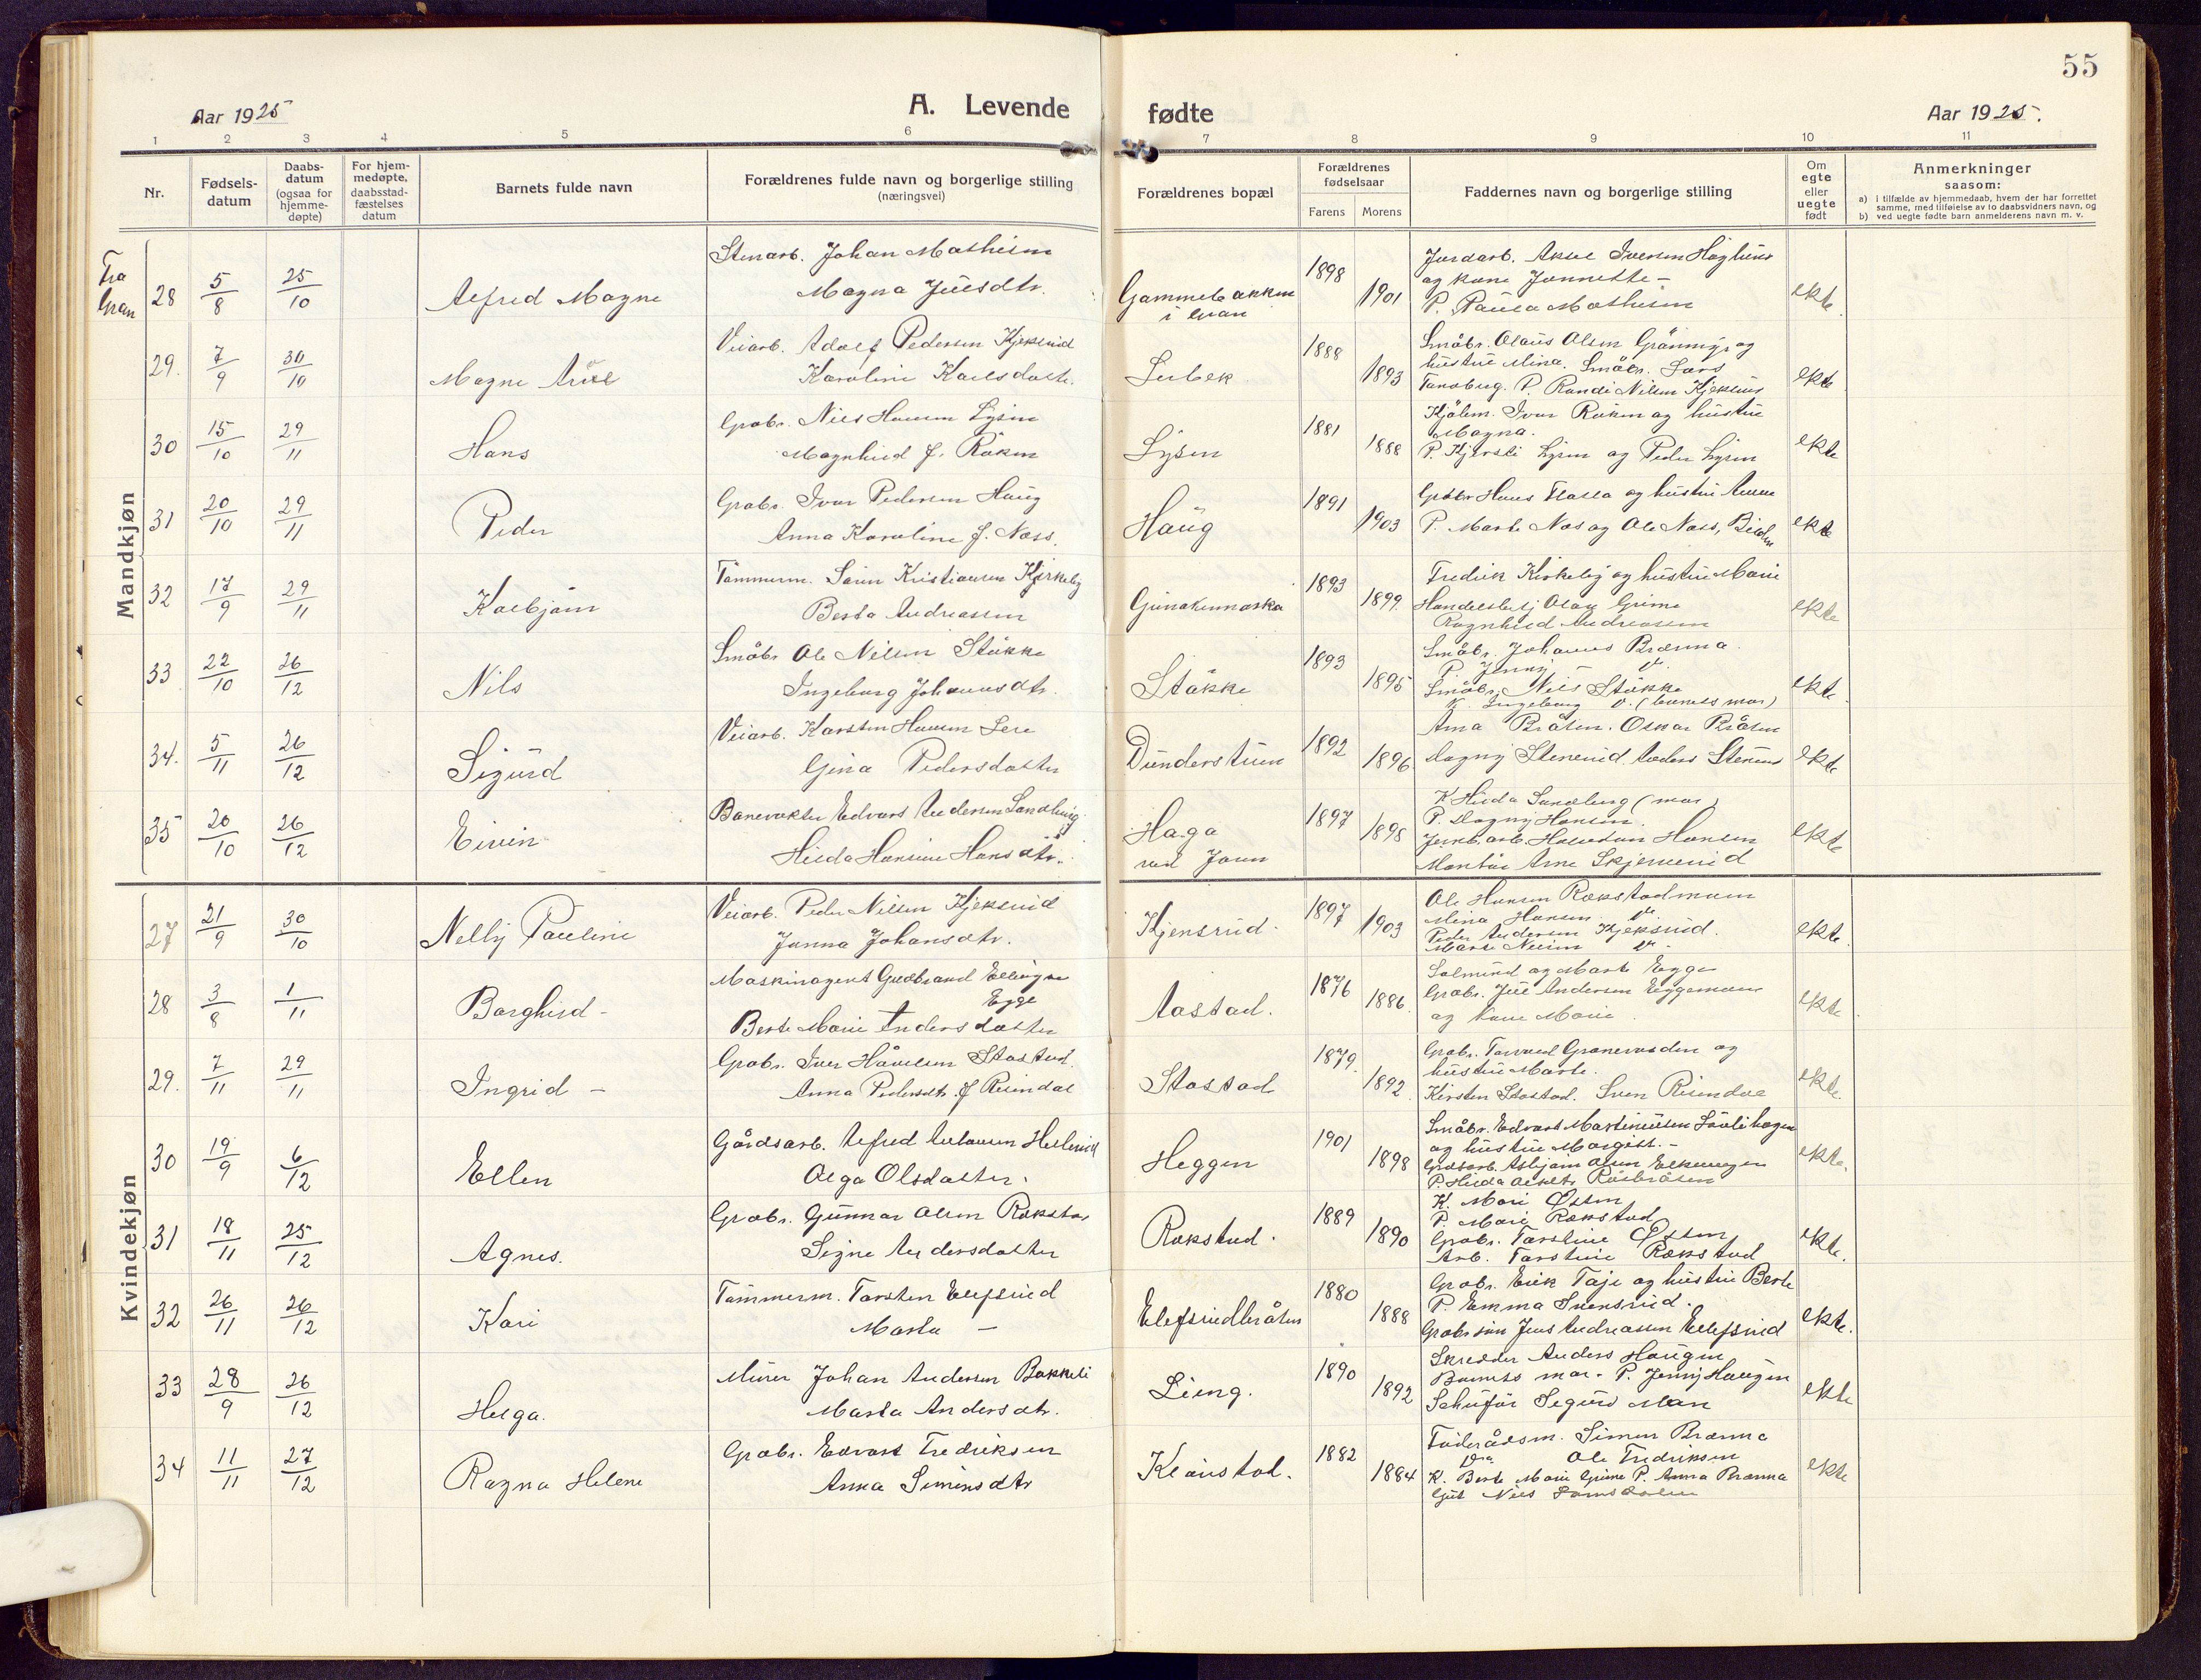 55
Aar 1925
A. Levende
fødte
Aar 1925.
1 2 3 4 5 6 7 8 9 10 11
Nr.
Fødsels-
datum
Daabs-
datum
(ogsaa for
hjemme-
døpte)
For hjem-
medøpte,
daabsstad-
fæstelses
datum
Barnets fulde navn
Forældrenes fulde navn og borgerlige stilling
(næringsvei)
Forældrenes bopæl
Forældrenes
fødselsaar
Farens
Morens
Faddernes navn og borgerlige stilling
Om
egte
eller
uegte
født
Anmerkninger
saasom:
a) i tilfælde av hjemmedaab, hvem der har forrettet
samme, med tilføielse av to daabsvidners navn, og
b) ved uegte fødte barn anmelderens navn m. v.
Mandkjøn
Fra
Gran
28 5/8 25/10 Alfred Magne
Stenarb. Johan Mathisen
Magna Juelsdtr.
Gammelbakken
i Gran
1898 1901
og kone Jannette -
P. Paula Mathisen
ekte
29. 7/9 30/10 Magne
Veiarb. Adolf Pedersen Kjeksrud
Karoline Karlsdatter.
Lubek
1888 1893
Småbr. Olaus Olsen Grønmyr og
hustru Mina. Småbr. Lars
Tandberg. P. Randi Nilsen Kjeksrud
ekte
30 15/10 29/11 Hans
Grdbr. Nils Hansen Lysen
Magnhild f. Røken
Lysen
1881 1888
Ivar Røken og hustru
Magna.
P. Kjersti Lysen og Peder Lysen
ekte
31 20/10 29/11 Peder
Grdbr. Ivar Pedersen Haug
Anna Karoline f. Næss.
Haug
1891 1903
Grdbr Hans Flalla og hustru Anne
P. Marte Næs og Ole Næss,
ekte
32 17/9 29/11 Kolbjørn
Tømmerm. Søren Kristiansen Kirkeby
Berta Andreassen
1893 1899
Fredrik Kirkeby og hustru Marie
Handelsbetj Olav Grime
Ragnhild Andreassen
ekte
33 22/10 26/12 Nils
Småbr Ole Nilsen Støkke
Ingeborg Johannsdtr.
Støkke
1893 1895
Småbr. Johannes Brænna.
P. Jenny - "
Småbr. Nils Støkke
K. Ingeborg do. (barnets mor)
ekte
34. 5/11 26/12 Sigurd
Veiarb. Karsten Hansen Lere
Gina Pedersdatter
Dunderstuen
1892 1896
Anna Bråten. Oskar Bråten
Magny Stenerud. Anders Stenerud
ekte
35 20/10 26/12 Eivin
Banevokter Edvart Andersen Sandberg
Hilda Hansine Hansdtr.
Haga
ved Jaren
1897 1898
K Hilda Sandberg (mor)
P. Magny Hansen.
Jernb. arb. Halvdan Hansen
Montør Arne Skjerverud
ekte
Kvindekjøn
27 21/9 30/10 Nelly Pauline
Veiarb. Peder Nilsen Kjeksrud
Janna Johansdtr.
Kjensrud.
1897 1903
Ole Hansen Rækstadmoen
Mina Hansen do.
Peder Andersen Kjeksrud.
Marte Nilsen do.
ekte.
28 3/8 1/11 Borghild -
Maskinagent Gudbrand Ellingsen
Egge
Berte Marie Andersdatter
Aastad.
1876 1886.
Salmund og Marte Egge
Grdbr. Juel Andersen Eggemoen
og kone Marie.
ekte.
29. 7/11 29/11 Ingrid -
Grdbr. Iver Håvelsen Stastad
Anna Pedersdtr. f Risendal
Stastad
1879. 1892.
Grdbr. Torvald Granerudsen og
hustru Marte.
Kirsten Stastad. Sven Risendal
ekte.
30 19/9 6/12 Ellen
Gårdsarb. Alfred
Olga Olsdatter.
Heggen
1901 1898
Småbr. Edvart Martiniusen Sørlihagen
og hustru Margitt. -
ekte.
31 18/11 25/12 Agnes.
Grdbr. Gunnar Olsen Rækstad
Signe Andersdatter
Rækstad.
1889 1890
K. Mari Østen
P. Mari Rækstad
Grdbr. Torstein Østen
Arb. Torstein Rækstad
ekte.
32 26/11 26/12 Kari
Tømmerm. Torsten Elefsrud
Marta -
Elefsrudbråten
1880 1888
Grdbr. Erik Taje og hustru Berte
P. Emma Svensrud.
Grdbr.søn Jens Andreassen Ellefsrud
ekte.
33 28/9 26/12 Helga.
Murer Johan Andersen Bakkeli
Marta Andersdtr.
Lieng.
1890 1892
Skredder Anders Haugen
Barnets mor. P. Jenny Haugen
Schufør Sigurd Moen
ekte
34 11/11 27/12 Ragna Helene
Grdbr. Edvart Fredriksen
Anna Simensdtr
Klæustad.
1882 1884
Føderådsm. Simen Brænna
Ole Fredriksen
K. Berte Marie Grime P. Anna Brænna
Gut Nils
ekte